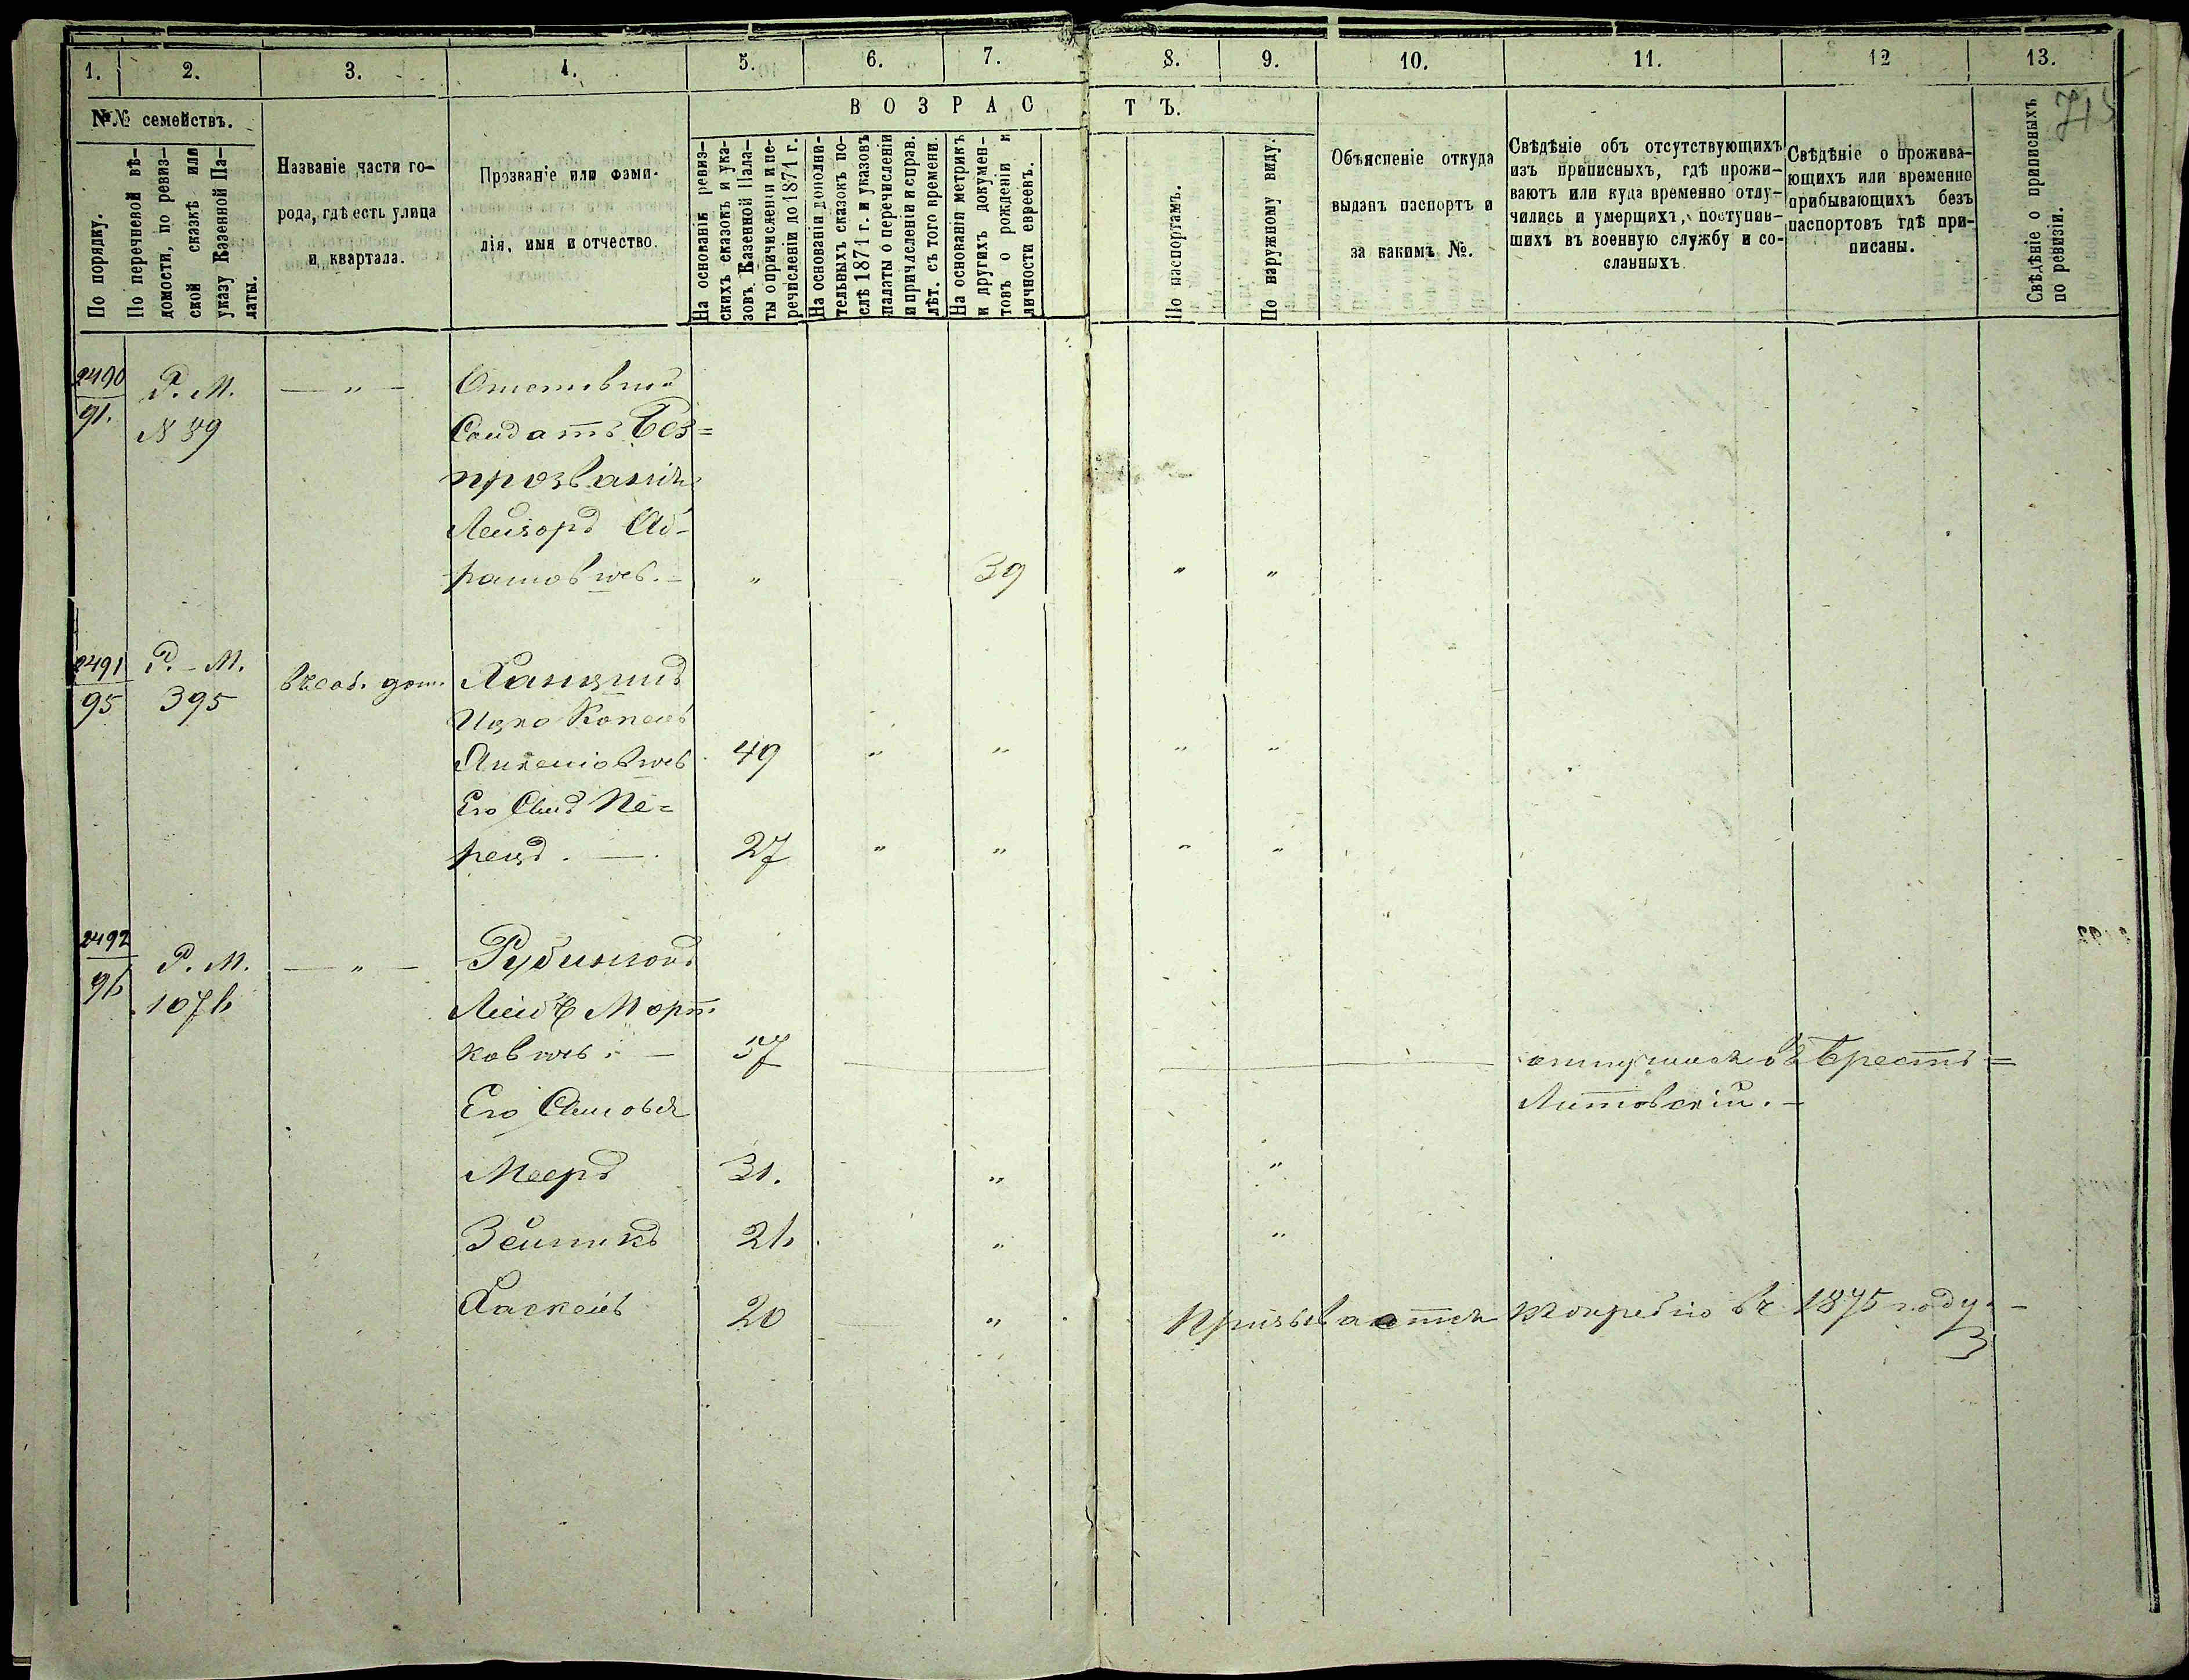 1. 2. 3. 4. 5. 6. 7. 8. 9. 10. 11. 12 13.
715
№№ семействъ.
В О З Р А С Т Ъ.
По порядку.
По перечневой вѣ-
домости, по ревиз-
ской сказкѣ или
указу Казенной Па-
латы.
Названіе части го-
рода, гдѣ есть улица
и квартала.
Прозваніе или фами-
лія, имя и отчество.
На основаніи ревиз-
скихъ сказокъ и ука-
зовъ Казенной Пала-
ты о причисленіи и пе-
речисленіи до 1871 г.
На основаніи дополни-
тельныхъ сказокъ по-
слѣ 1871 г. и указовъ
палаты о перечисленіи
и причисленіи и справ.
лѣт. съ того времени.
На основаніи метрикъ
и другихъ докумен-
товъ о рожденіи и
личности евреевъ.
По паспортамъ.
По наружному виду.
Объясненіе откуда
выданъ паспортъ и
за какимъ №.
Свѣдѣніе объ отсутствующихъ
изъ приписныхъ, гдѣ прожи-
ваютъ или куда временно отлу-
чились и умершихъ, поступив-
шихъ въ военную службу и со-
сланныхъ.
Свѣдѣніе о прожива-
ющихъ или временно
прибывающихъ безъ
паспортовъ гдѣ при-
писаны.
Свѣдѣніе о приписныхъ
по ревизіи.
2490 Р. М. — " — Отставной
91. N 89 Солдатъ Без=
прозванія
Лейзоръ Аб-
рамовичъ. — " 39 " "
2491 Р. - М. въ соб. дом. Ханцинъ
95 395 Ицко Копель
Анкелiовичъ 49 " " " "
Его Сынъ Пе=
рецъ . — . 27 " " " "
2492 Р. М. — " — Рубинзонъ
96 1076 Лейба Морт
ковичъ . — 57 отлучился въ Брестъ =
Его Сыновья Литовскій. —
Мееръ 31. " "
Зелникъ 26 " "
Хаскель 20 " Призывается къ жребію въ 1875 году. —
3